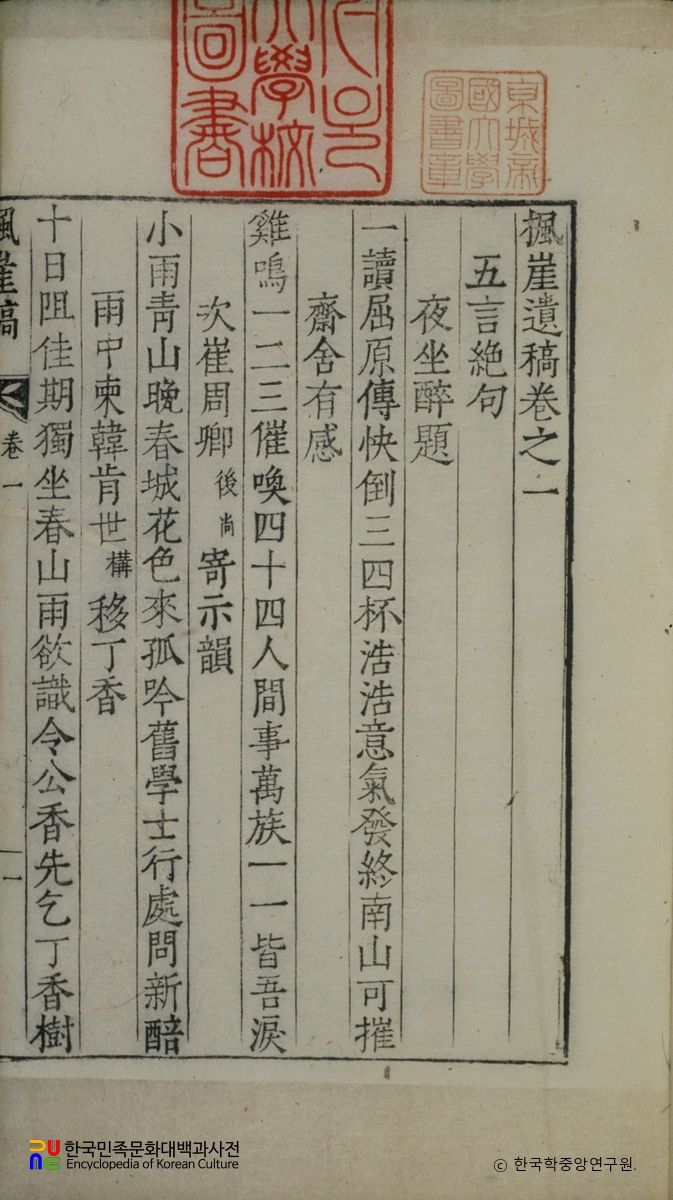 大學校圖書
京城帝國大學圖書章
楓崖遺稿卷之一
五言絶句
夜坐醉題
一讀屈原傳快倒三四杯浩浩意氣發終南山可摧
齋舍有感
雞鳴一二三催喚四十四人間事萬族一一皆吾淚
次崔周卿尚後寄示韻
小雨靑山晚春城花色來孤吟舊學士行處問新醅
雨中柬韓肯世構移丁香
十日阻佳期獨坐春山雨欲識令公香先乞丁香樹
楓崖稿 卷一 一
한국민족문화대백과사전
Encyclopedia of Korean Culture
ⓒ 한국학중앙연구원.